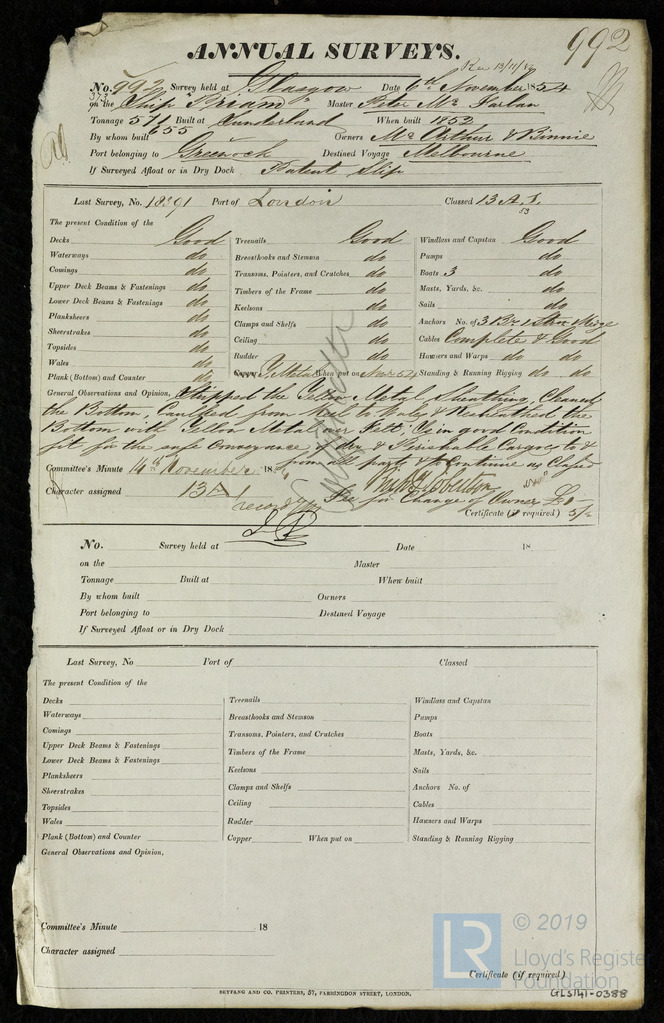 992
ANNUAL SURVEYS.
No. 992 Survey held at Glasgow Date 6th November 1854
on the Ship Priam Master Peter Mc Farlan
Tonnage 571 Built at Sunderland When built 1853
655
By whom built Owners Mc Arthur & Binnie
Port belonging to Greenock Destined Voyage Melbourne
If Surveyed Afloat or in Dry Dock Patent Slip
Last Survey, No. 18391 Port of London Classed 13 A.1.
53
The present Condition of the
Decks Good
Waterways do
Comings do
Upper Deck Beams & Fastenings do
Lower Deck Beams & Fastenings do
Planksheers do
Sheerstrakes do
Topsides do
Wales do
Plank (Bottom) and Counter do
Treenails Good
Breasthooks and Stemson do
Transoms, Pointers, and Crutches do
Timbers of the Frame do
Keelsons do
Clamps and Shelfs do
Ceiling do
Rudder do
Copper Y. Metal When put on Nov. 54
Windlass and Capstan Good
Pumps do
Boats 3 do
Masts, Yards, &c. do
Sails do
Anchors No. of 3 Br 1 Stre
Cables Complete & Good
Hawsers and Warps do do
Standing & Running Rigging do do
General Observations and Opinion, Stripped the Yellow Metal Sheathing, Cleaned
the Bottom, Caulked from Keel to Wales & Resheathed the
Bottom with Yellow Metal over Felt; Is in good Condition
fit for the safe Conveyance of dry & Perishable Cargoes to &
from all parts & to Continue as Classed
Committee's Minute 14th November 18
Character assigned 13 A
Fee for Change of Owner £
Certificate (if required) 5/-
No. Survey held at Date 18
on the Master
Tonnage Built at When built
By whom built Owners
Port belonging to Destined Voyage
If Surveyed Afloat or in Dry Dock
Last Survey, No Port of Classed
The present Condition of the
Decks
Waterways
Comings
Upper Deck Beams & Fastenings
Lower Deck Beams & Fastenings
Planksheers
Sheerstrakes
Topsides
Wales
Plank (Bottom) and Counter
Treenails
Breasthooks and Stemson
Transoms, Pointers, and Crutches
Timbers of the Frame
Keelsons
Clamps and Shelfs
Ceiling
Rudder
Copper When put on
Windlass and Capstan
Pumps
Boats
Masts, Yards, &c.
Sails
Anchors No. of
Cables
Hawsers and Warps
Standing & Running Rigging
General Observations and Opinion,
Committee's Minute 18
Character assigned
Certificate (if required)
SEYFANG AND CO. PRINTERS, 57, FARRINGDON STREET, LONDON.
LR
© 2019
Lloyd's Register
Foundation
GLS141-0388